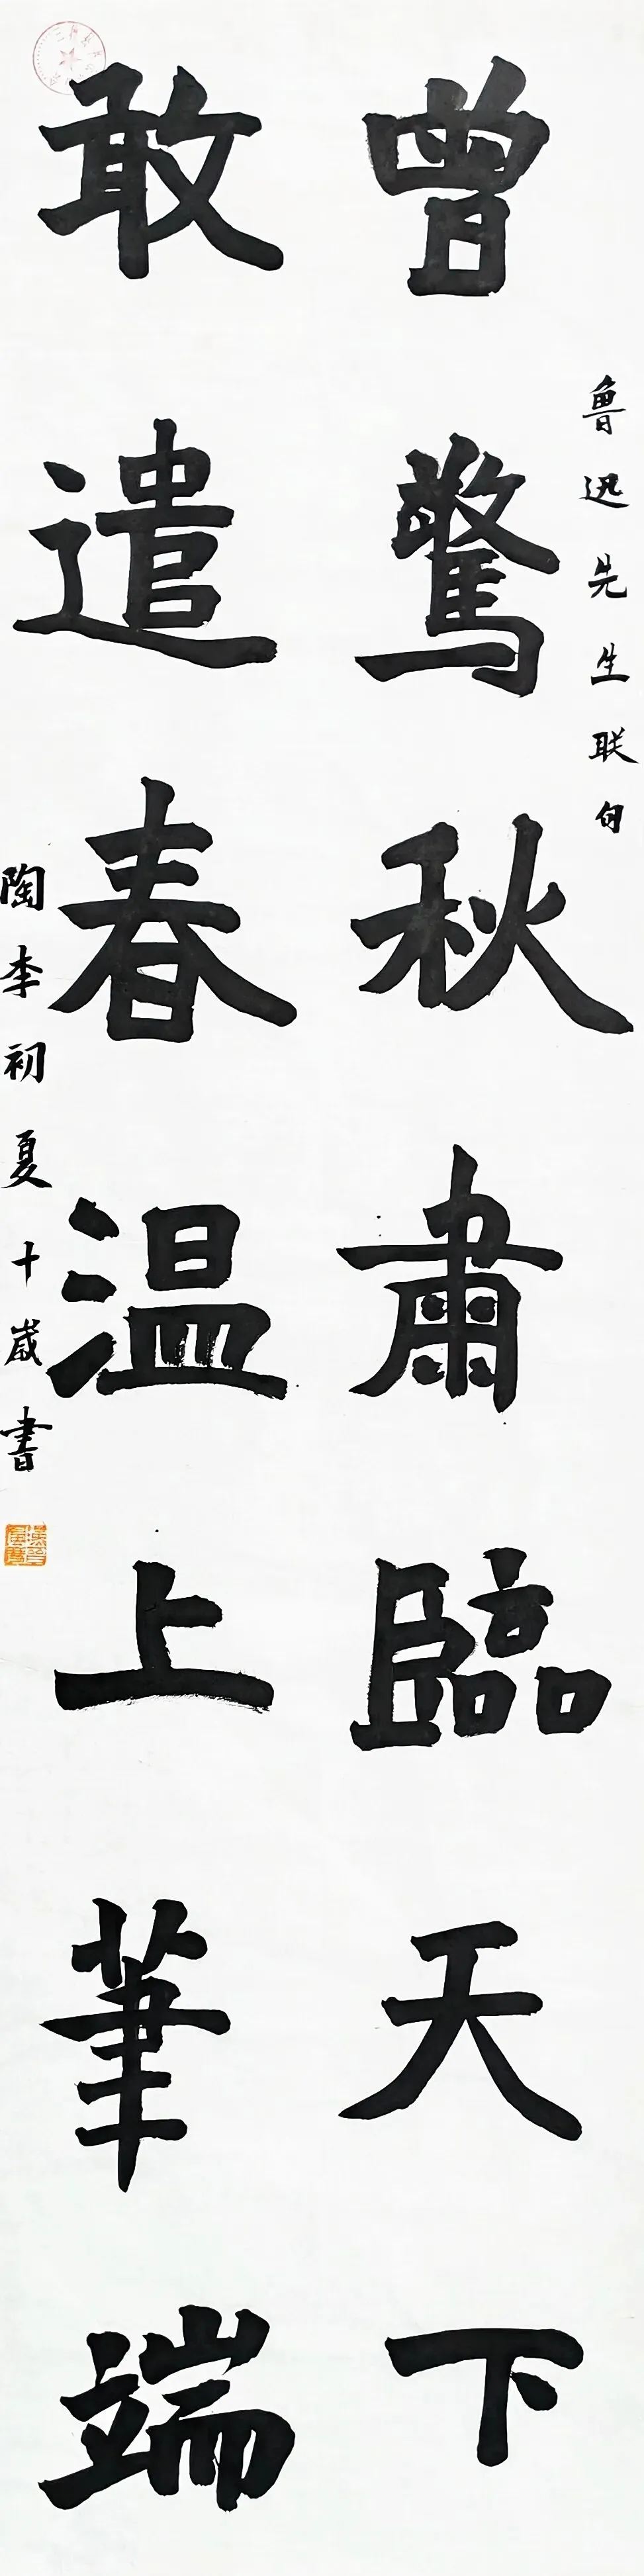 魯迅先生联句
曾驚秋肅臨天下
敢遣春温上筆端
陶李初夏十歲書